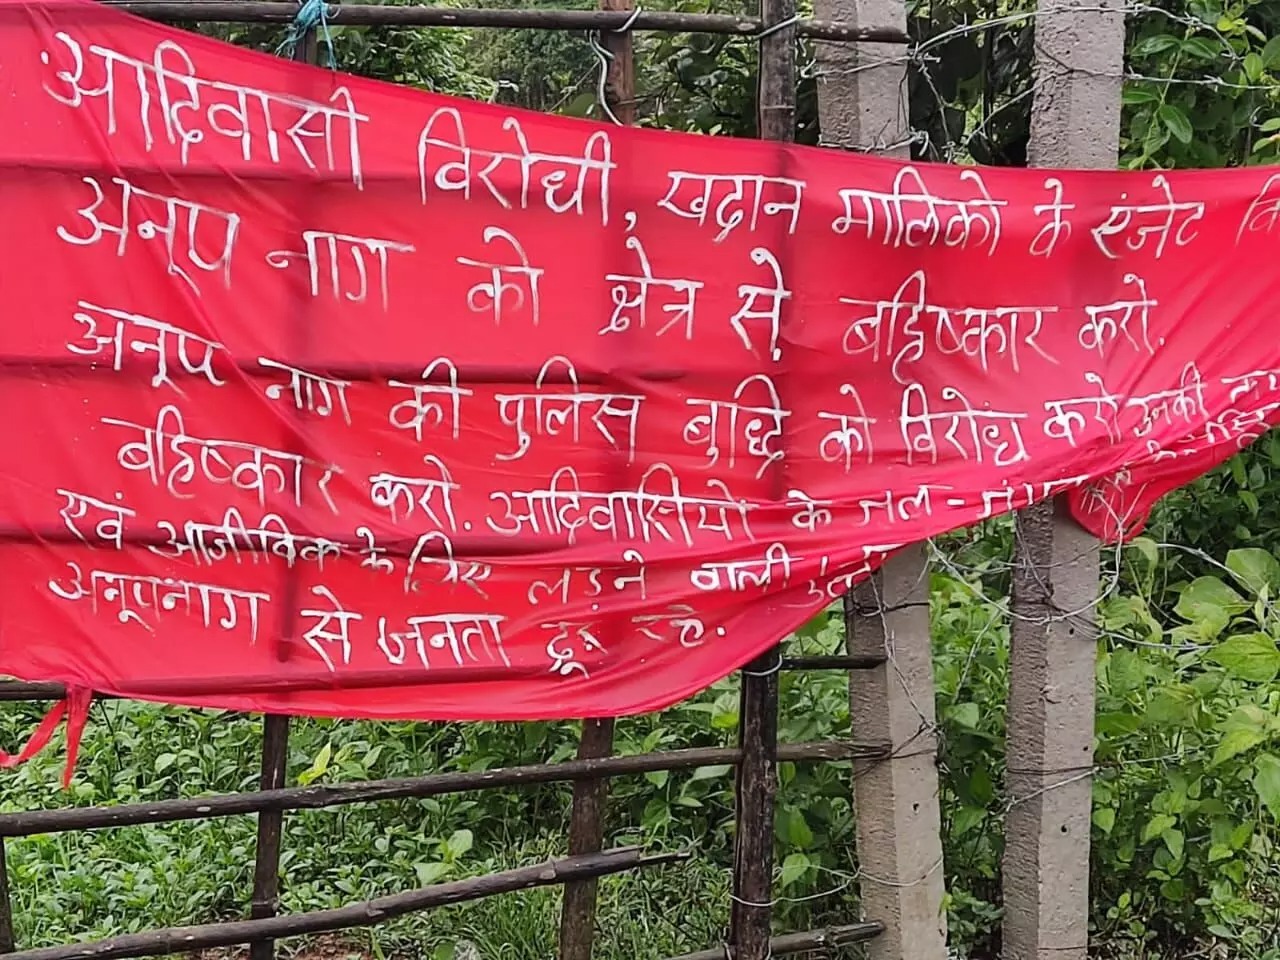 आदिवासी विरोधी, खद्दान मालिको के एंजेट वि
अनूप नाग को क्षेत्र से बहिष्कार करो.
अनूप नाग की पुलिस बुद्धि को विरोध करो उनकी
बहिष्कार करो. आदिवासियो के जल-
एवं आजीविक के लिए लड़ने वाली
अनूपनाग से जनता दूर रहे.